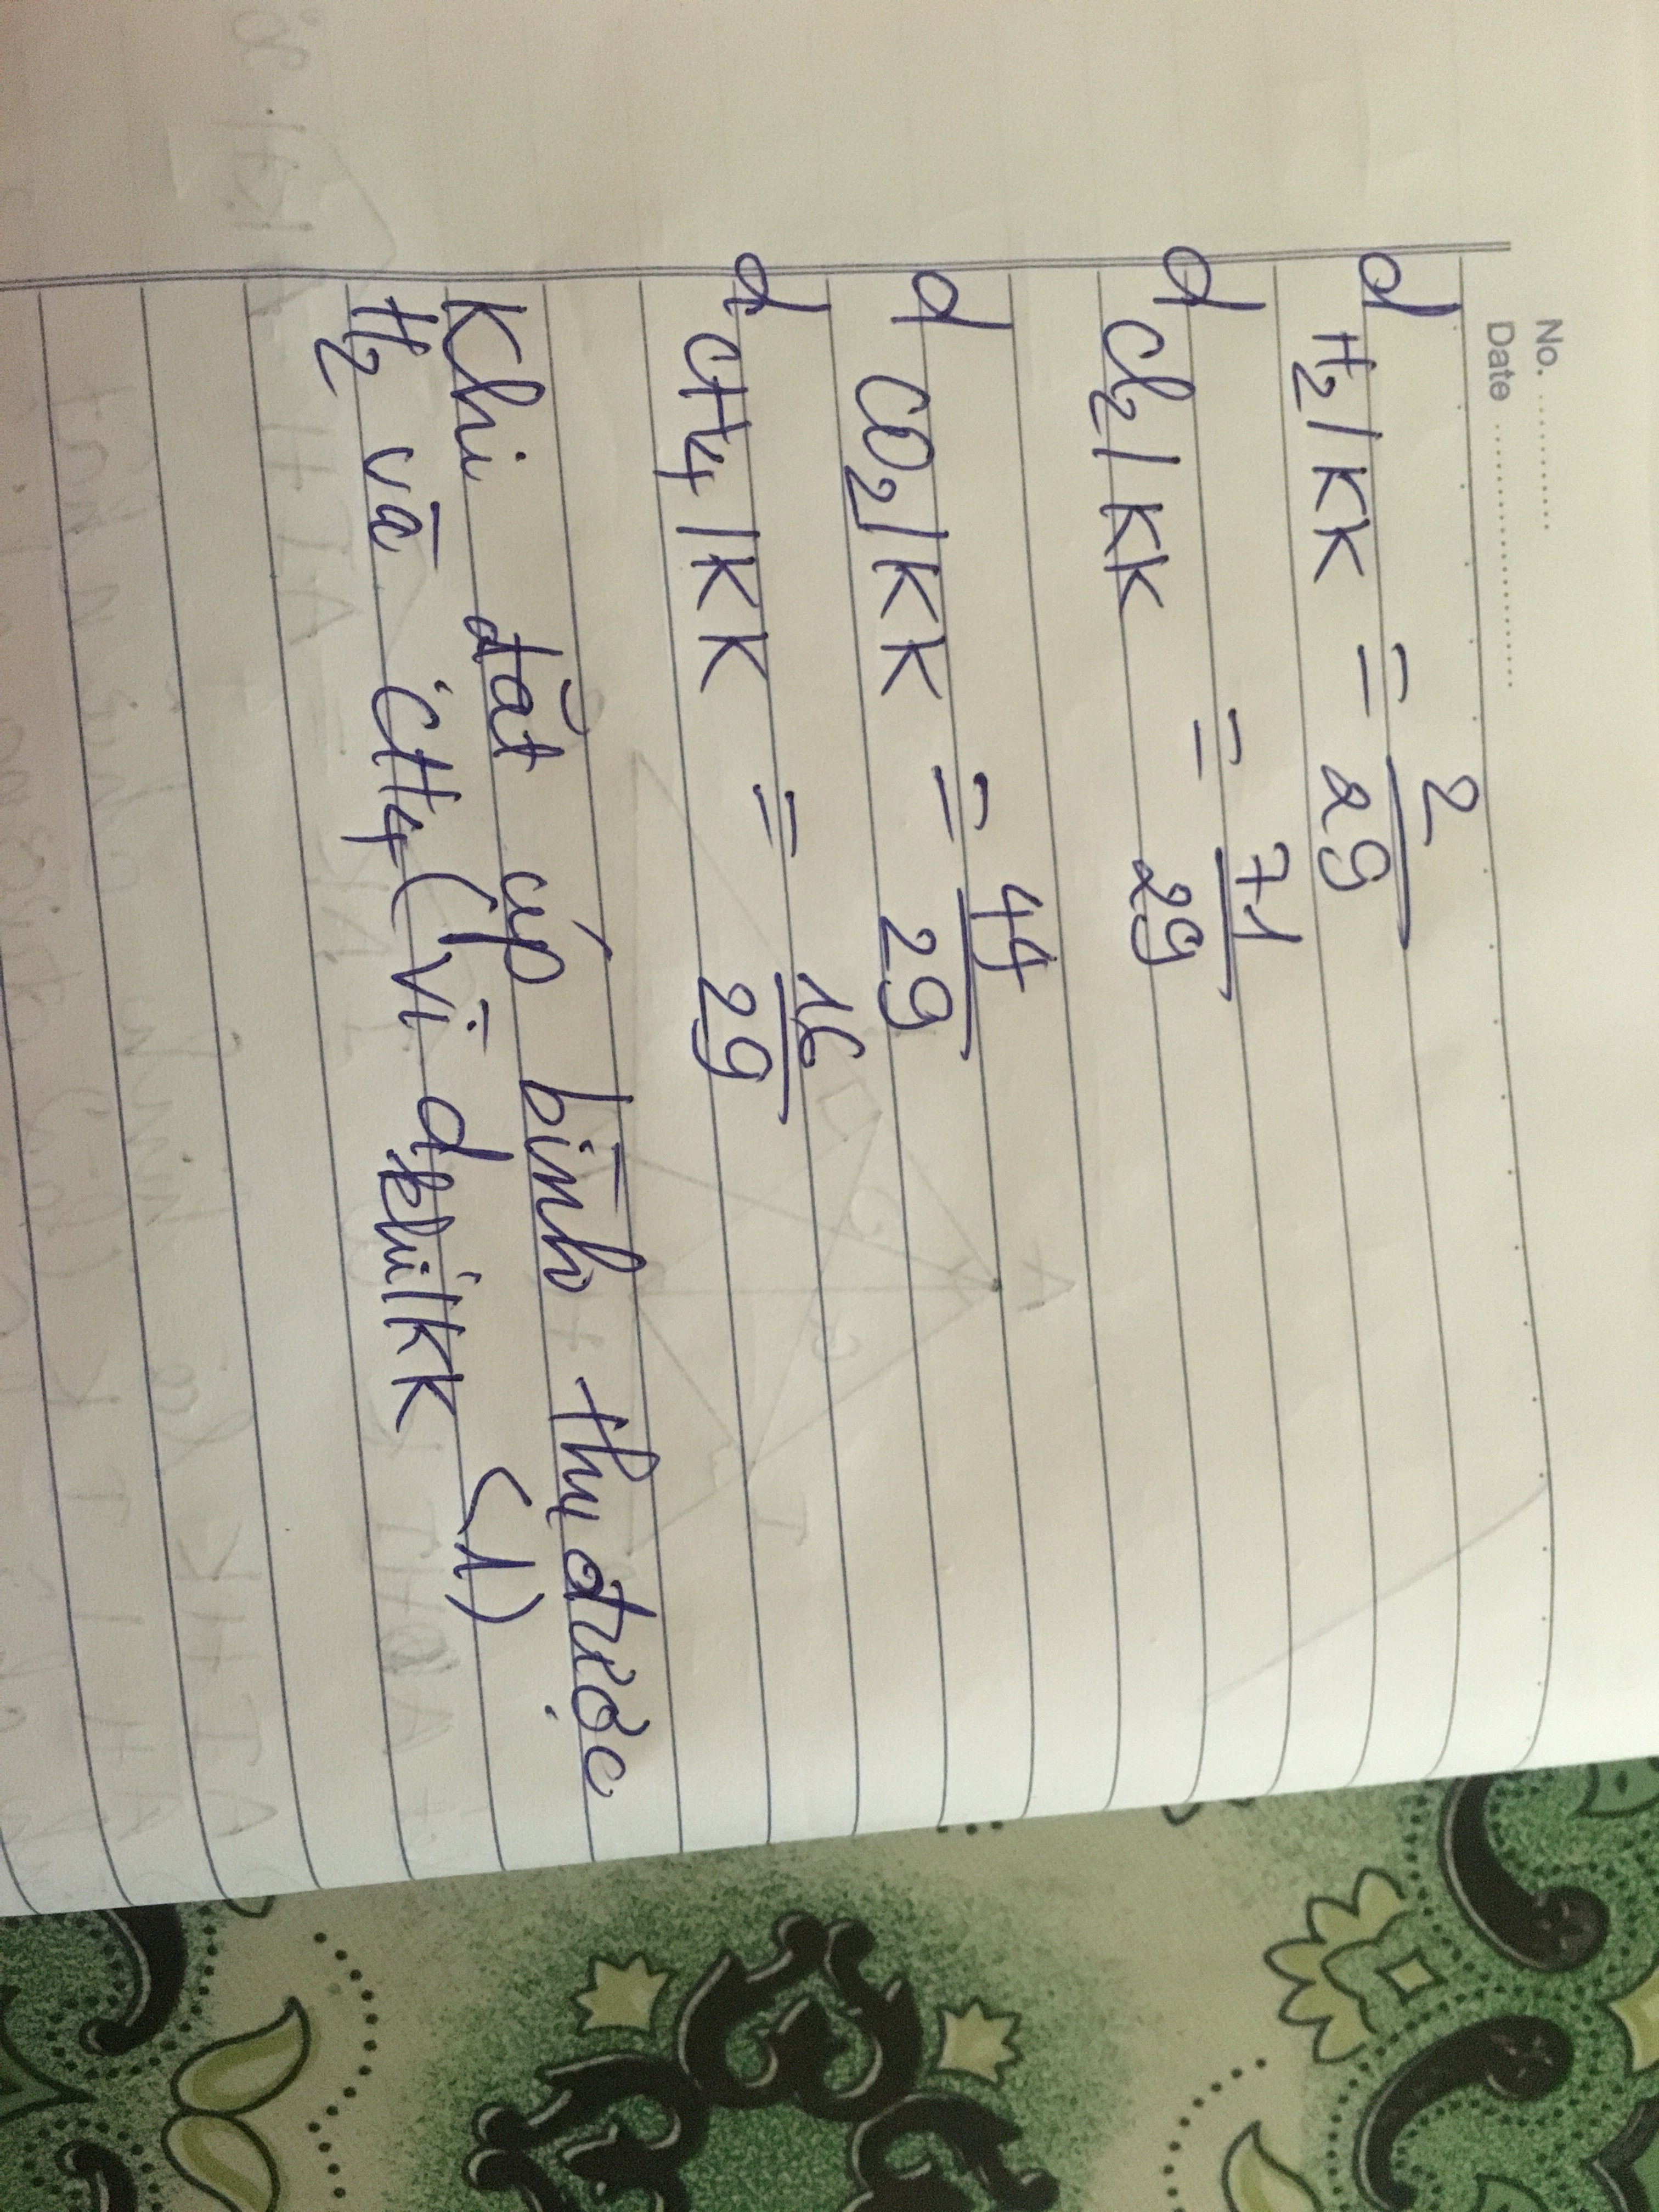 No. ............
Date .....................
d H₂/KK = 2/29
d Cl₂/KK = 71/29
d CO₂/KK = 44/29
d CH₄/KK = 16/29
Khi đặt úp bình thu được
H₂ và CH₄ (vì d khí/KK <1)